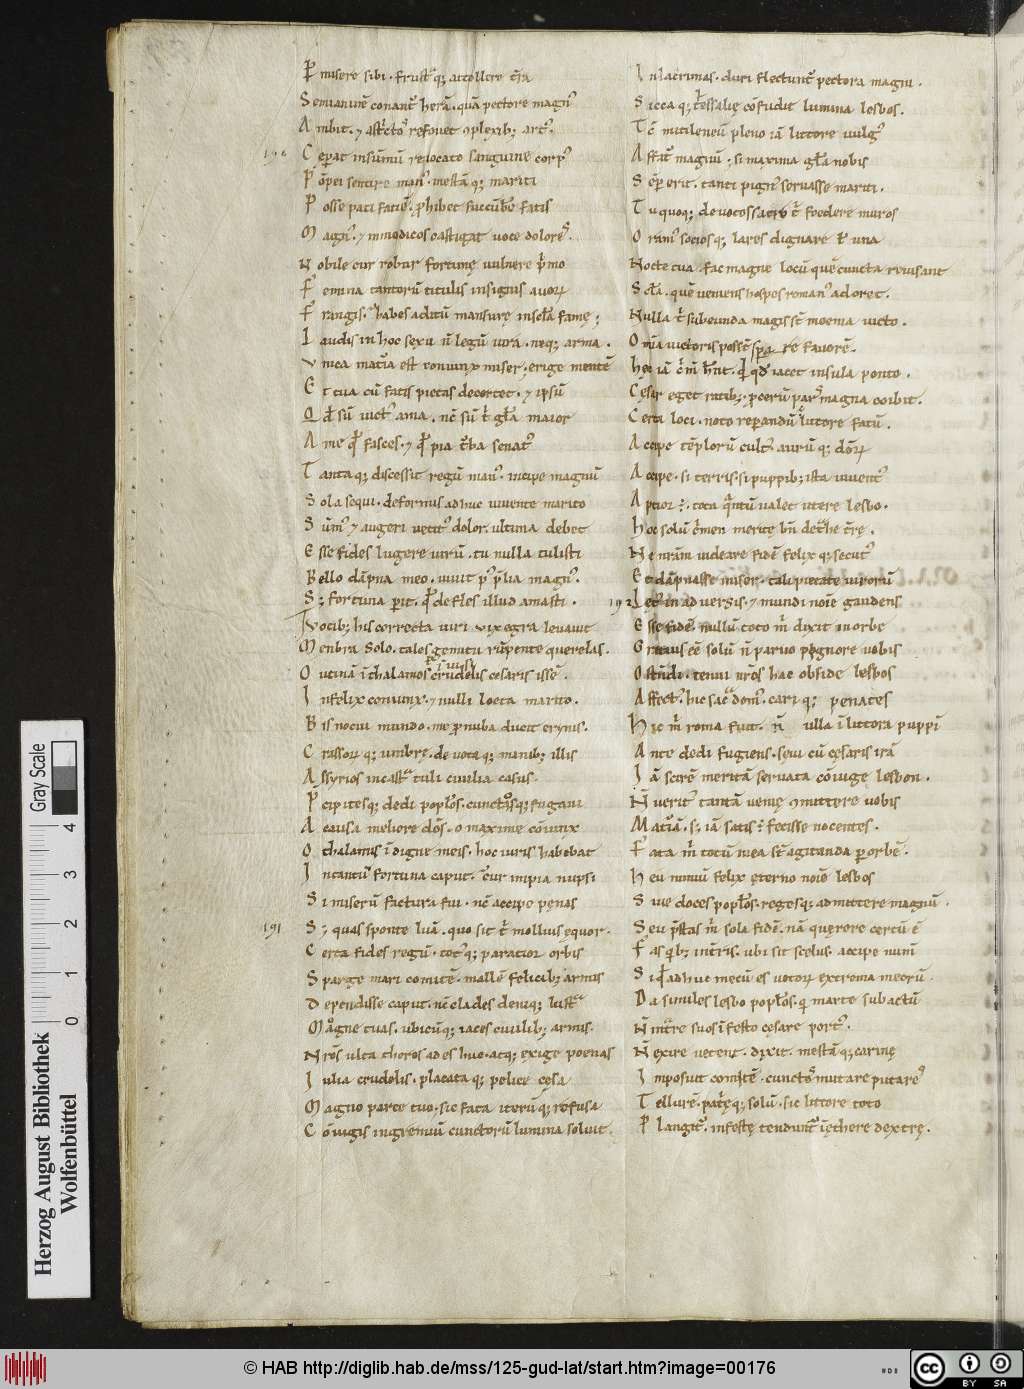 P misere sibi. frustꝰ q; attollere t̄ra
Semianimē conant᷑ herā. quā pectore magnꝰ
Ambit. ⁊ astͥctoꝰ refouet ꝯplexib; artꝰ.
Ceꝑat insūmū reuocato sanguine corpꝰ
Pōpei sentire manꝰ. mestā q; mariti
Posse pati faciē. ꝓhibet succūbe᷑ fatis
Magnꝰ. ⁊ inmodicos castigat uoce dolores.
Nobile cur robur fortunę uulnere p̄mo
Femina tantorū titulis insignis auoꝝ
Frangis. habes aditū mansurę insecła famę;
Laudis in hoc sexu n̄ legū iura. neq; arma.
Vnica mat̄ia est coniunx miser. erige mentē
Et tua cū fatis pietas decertet. ⁊ ipsū
Qđ sū uictꝰ ama. nc̄ sū t᷑ gła maior
A me qđ fasces. ⁊ qđ pia t᷑ba senatꝰ
Tanta q; discessit regū manꝰ. incipe magnū
Sola sequi. deformis adhuc uiuente marito
Sūmꝰ ⁊ augeri uetitꝰ dolor. ultima debet
Esse fides lugere uirū. tu nulla tulisti
Bello dāpna meo. uiuit pꝰ p̄lia magnꝰ.
S; fortuna ꝑit. qđ defles illud amasti.
Vocib; his correcta uiri uix egra leuauit
Menbra solo. tales gemitu rūpente querelas.
O utinā ī thalamos crudelis cesaris issē.
Infelix coniunx. ⁊ nulli loeta marito.
Bis nocui mundo. me ꝓnuba ducit erynis.
Crassoꝝ q; umbrę. deuota q; manib; illis
Assyrios in castͣ tuli ciuilia casus.
Pcipitesq; dedi popłos. cunctosq; fugaui
A causa meliore dōs. o maximę cōiunx
O thalamis īdigne meis. hoc iuris habebat
Intantū fortuna caput. cur impia nupsi
Si miserū factura fui. nc̄ accipe pęnas
191 S; quas sponte luā. quo sit t᷑ mollius ęquor.
Certa fides regū. totꝰq; paratior orbis
Sparge mari comitē. mallē felicib; armis
Dependisse caput. nc̄ clades deniq; lustͣ
Magne tuas. ubicūq; iaces ciuilib; armis.
Nr̄os ulta thoros ades huc. atq; exige poenas
Iulia crudelis. placata q; pelice cęsa
Magno parce tuo. sic fata iterū q; refusa
Cōiugis ingremiū cunctorū lumina soluit.
In lacrimas. duri flectunt᷑ pectora magni.
Sicca q; t᷑essalię cōfudit lumina lesbos.
Tc̄ mitileneū pleno iā littore uulgꝰ
Affat᷑ magnū; si maxima gła nobis
Sēꝑ erit. tanti pignꝰ seruasse mariti.
Tu quoq; deuotos sacro t᷑ foedere muros
Oramꝰ sociosq; lares dignare uͭ una
Nocte tua. fac magne locū quē cuncta reuisant
Scła. quē ueniens hospes romanꝰ adoret.
Nulla t᷑ subeunda magis st̄ moenia uicto.
Om̄ia uictoris possēt sperare fauorē.
Hęc iā c̄m̄ hn̄t. qđ qđ iacet insula ponto.
Cęsar eget ratib;. ꝓcerū parsͣ magna coibit.
Certa loci. noto repandū littore fatū.
Accipe tēplorū cultꝰ aurū q; dōꝝ
Accipe. si terris. si puppib; ista iuuentꝰ
Aptior ē. tota quantū ualet utere lesbo.
Hoc solū c̄men meritę bn̄ det᷑he t̄rę.
Ne nr̄am uideare fidē felix q; secutꝰ
Et dāpnasse miser. tali pietate uirorū
192 Lętꝰ in aduersis. ⁊ mundi noīe gaudens
Esse fidē. nullū toto m̄ dixit in orbe
Gratius eē solū n̄ paruo pignore uobis
Ostīdi. tenui nr̄os hac obside lesbos
Affectꝰ. hic sac̄ domꝰ. cari q; penates
Hic m̄ roma fuit. n̄ ulla ī littora puppī
Ante dedi fugiens. seui cū cęsaris irā
Iā scirē meritā seruata cōiuge lesbon.
N̄ ueritꝰ tantā uenię ꝯmittere uobis
Matīā. s; iā satis ē. fecisse nocentes.
Fata m̄ totū mea st̄ agitanda ꝑ orbē.
Heu nimiū felix ęterno noīe lesbos
Siue doces popłos. regesq; admittere magnū.
Seu p̄stas m̄ sola fidē. nā quęrere certū ē
Fas qͥb; int̄ris. ubi sit scelus. accipe numī
Siqđ adhuc mecū es uotoꝝ extrema meorū.
Da similes lesbo popłos. qͥ marte subactū
N̄ int᷑re suos īfesto cęsare portꝰ.
N̄ exire uetent. dixit. mestā q; carinę
Imposuit comitē. cunctos mutare putares
Tellurē. patrię q; solū. sic littore toto
Plangit᷑. infestę tendunt᷑ ī ęthere dextrę.
Gray Scale
0 1 2 3 4
Herzog August Bibliothek
Wolfenbüttel
© HAB http://diglib.hab.de/mss/125-gud-lat/start.htm?image=00176
cc BY SA